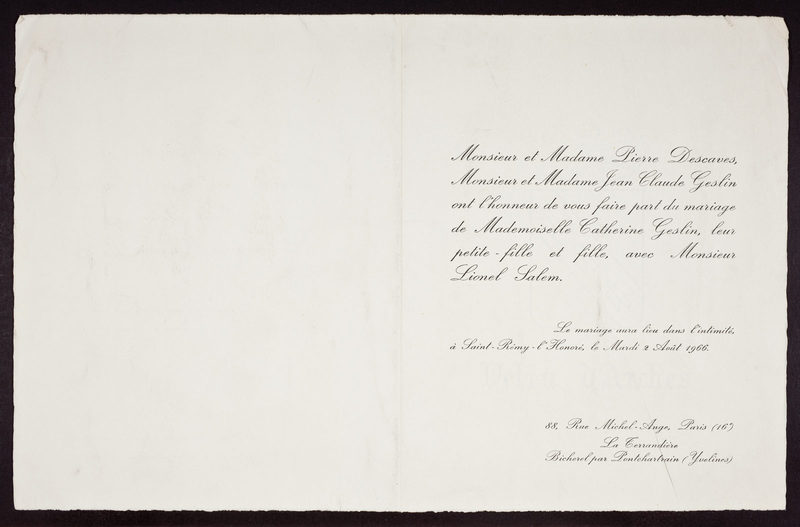 Monsieur et Madame Pierre Descaves,
Monsieur et Madame Jean Claude Geslin
ont l'honneur de vous faire part du mariage
de Mademoiselle Catherine Geslin, leur
petite-fille et fille, avec Monsieur
Lionel Salem.
Le mariage aura lieu dans l'intimité,
à Saint-Rémy-l'Honoré, le Mardi 2 Août 1966.
88, Rue Michel-Ange, Paris (16e)
La Terrandière
Bicherel par Pontchartrain (Yvelines)